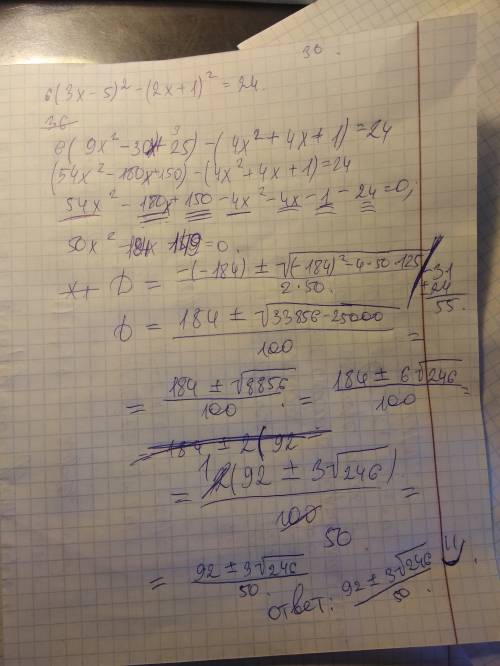 30.
6(3x-5)² - (2x+1)² = 24.
36
6(9x² - 30x + 25) - (4x² + 4x + 1) = 24
(54x² - 180x + 150) - (4x² + 4x + 1) = 24
54x² - 180x + 150 - 4x² - 4x - 1 - 24 = 0;
50x² - 184x 149 = 0.
x+ D = (-(-184) ± √((-184)² - 4·50·125)) / (2·50.)
31
+24
55.
D = (184 ± √(33856 - 25000)) / 100 =
= (184 ± √8856) / 100 = (184 ± 6√246) / 100 =
= 184 ± 2(92 =
= 2(92 ± 3√246) / 100 =
50
= (92 ± 3√246) / 50.
ответ: (92 ± 3√246) / 50.